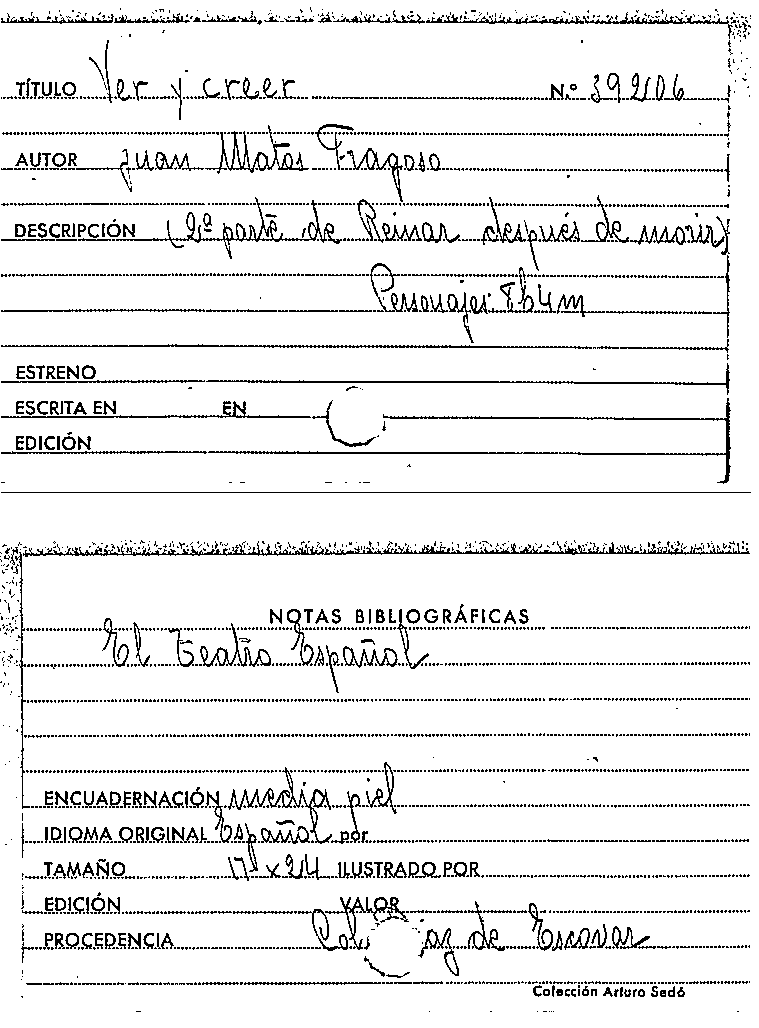 TÍTULO Ver y creer N.º 39206
AUTOR Juan Matos Fragoso
DESCRIPCIÓN (2ª parte de Reinar después de morir)
Personajes 8h4m
ESTRENO
ESCRITA EN EN
EDICIÓN
NOTAS BIBLIOGRÁFICAS
El Teatro Español
ENCUADERNACIÓN media piel
IDIOMA ORIGINAL Español por
TAMAÑO 17 x 24 ILUSTRADO POR
EDICIÓN VALOR
PROCEDENCIA Col. de Escovar
Colección Arturo Sedó